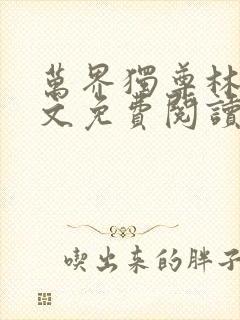 萬界獨尊林
文免費閱讀
喫出来的胖子